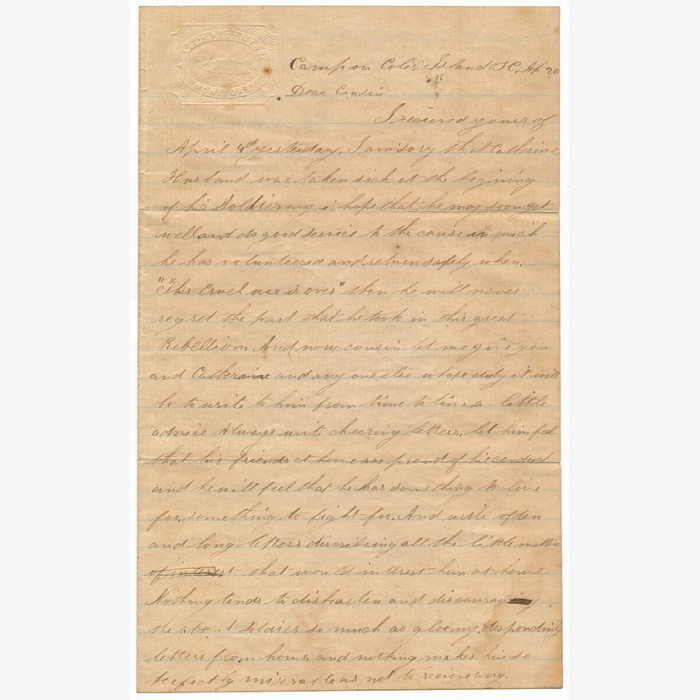 Camp on Coles Island S.C. Ap 20
Dear Cousin
I received yours of
April 4th yesterday. I am sory that Catherine
Husband was taken sick at the begining
of his Soldiering i hope that he may soon get
well and do good service to the cause in wich
he has volunteered and return safely when.
"This Cruel war is over" then he will never
regret the part that he took in this great
Rebellion. And now cousin let me give you
and Catheraine and any one else whose duty it will
be to write to him from time to time a little
advice Always write cheering letters, let him feel
that his friends at home are proud of his conduct
and he will feel that he has something to live
for, something to fight for. And write often
and long letters discribeing all the little matters
of interest that would interest him at home
Nothing tends to dishearten and discourage
the absent Soldier so much as gloomy, desponding
letters from home and nothing makes him so
perfectly miserable as not to receive any